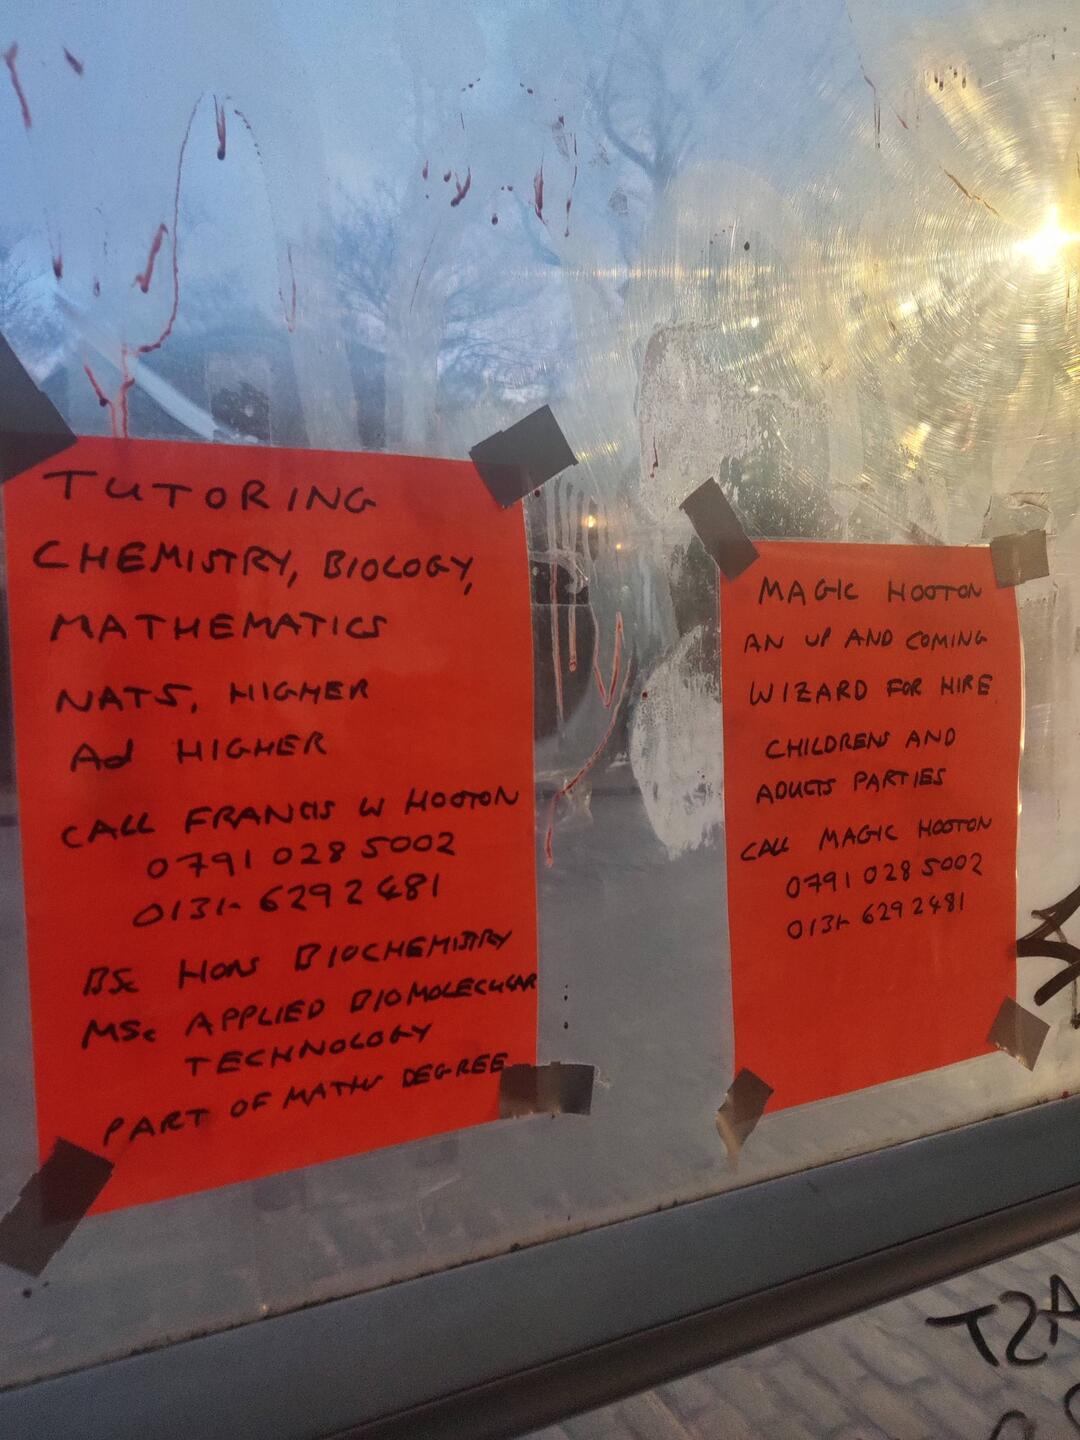 TUTORING
CHEMISTRY, BIOLOGY,
MATHEMATICS
NATS, HIGHER
Ad HIGHER
CALL FRANCIS W HOOTON
0791 028 5002
0131- 629 2481
BSc HONS BIOCHEMISTRY
MSc APPLIED BIOMOLECULAR
TECHNOLOGY
PART OF MATHS DEGREE
MAGIC HOOTON
AN UP AND COMING
WIZARD FOR HIRE
CHILDRENS AND
ADULTS PARTIES
CALL MAGIC HOOTON
0791 028 5002
0131- 629 2481